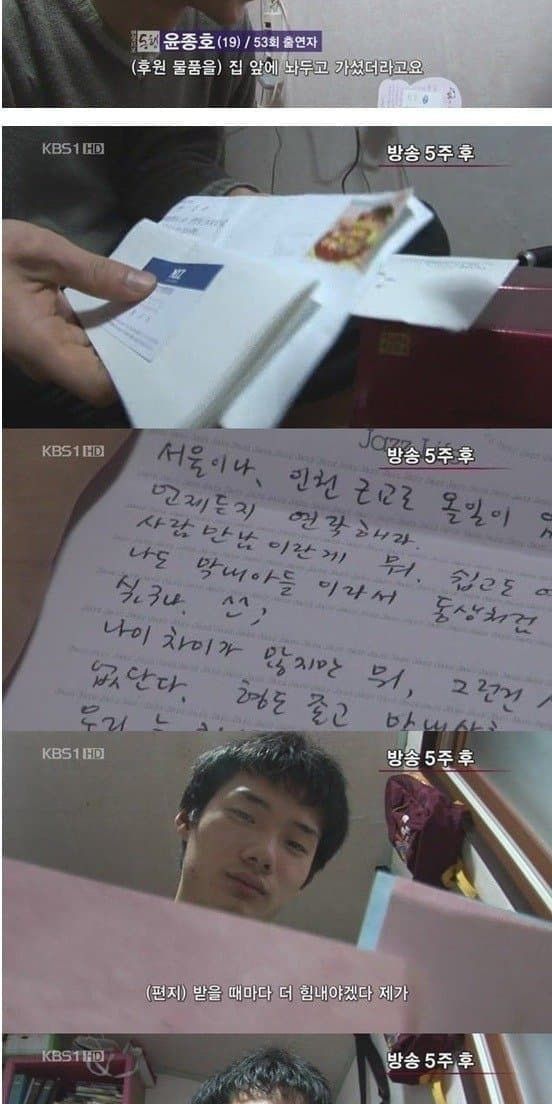 동행 윤종호 (19) / 53회 출연자
(후원 물품을) 집 앞에 놔두고 가셨더라고요
KBS1 HD
방송 5주 후
KBS1 HD
방송 5주 후
서울이나, 인천 근교로 올일이
언제든지 연락해라.
사람만남이란게 뭐. 쉽고도
나도 막내아들 이라서 동생처럼
나이 차이가 많지만 뭐, 그런건
없단다. 형도 줄고
KBS1 HD
방송 5주 후
(편지) 받을 때마다 더 힘내야겠다 제가
KBS1 HD
방송 5주 후